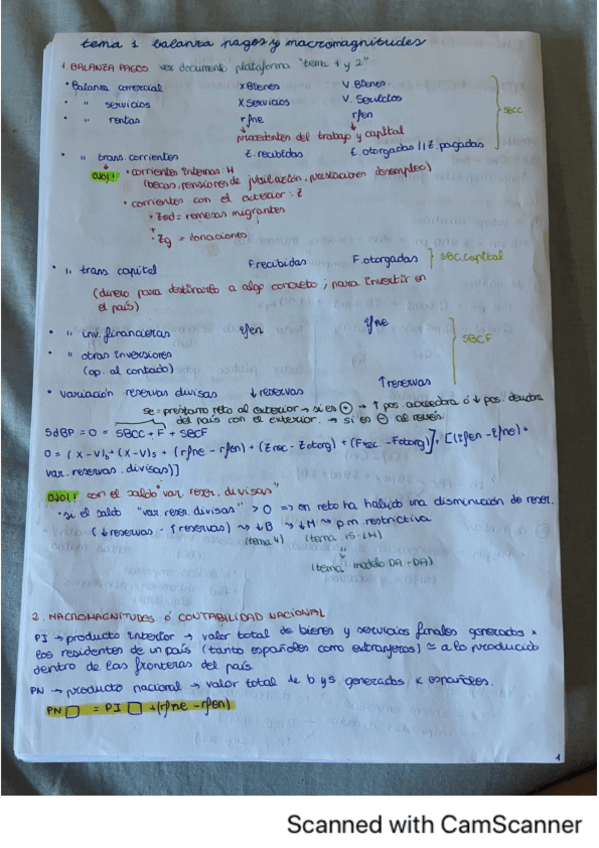 tema 1 balanza pagos y macromagnitudes
1. BALANZA PAGOS. ver documento plataforma "tema 1 y 2"
• Balanza comercial X Bienes V. Bienes
• " servicios X Servicios V. Servicios SBCC
• " rentas rfne rfen
procedentes del trabajo y capital
• " trans. corrientes Z. recibidas Z. otorgadas // Z. pagadas
OJO! • corrientes internas: H
(becas, pensiones de jubilación, prestaciones desempleo)
• corrientes con el exterior: Z
• Zed = remesas migrantes
+
• Zg = donaciones
• " trans capital F. recibidas F. otorgadas } SBC. Capital
(dinero para destinarlo a algo concreto; para invertir en
el país)
• " inv. financieras Ifen Ifne
• " otras inversiones SBCF
(op. al contado)
• variación reservas divisas ↓ reservas ↑ reservas
se = préstamo neto al exterior → si es ⊕ → ↑ pos. acreedora ó ↓ pos. deudora
del país con el exterior. → si es ⊖ al revés
SdBP = 0 = SBCC + F + SBCF
0 = (X - V)b + (X - V)s + (rfne - rfen) + (Zrec - Zotorg) + (Frec - Fotorg)], [(Ifen - Ifne) +
var. reservas. divisas)]
OJO! con el saldo "var reser. divisas"
• si el saldo "var. reser. divisas" > 0 => en neto ha habido una disminución de reser.
(↓ reservas - ↑ reservas) ↝ ↓B ↝ ↓M ↝ p.m. restrictiva
(tema 4) (tema IS-LM)
(tema modelo DA-OA)
2. MACROMAGNITUDES ó CONTABILIDAD NACIONAL
PI → producto interior → valor total de bienes y servicios finales generados x
los residentes de un país (tanto españoles como extranjeros) ≃ a lo producido
dentro de las fronteras del país.
PN → producto nacional → valor total de b y s generados x españoles.
PN □ = PI □ + (rfne - rfen)
1
Scanned with CamScanner